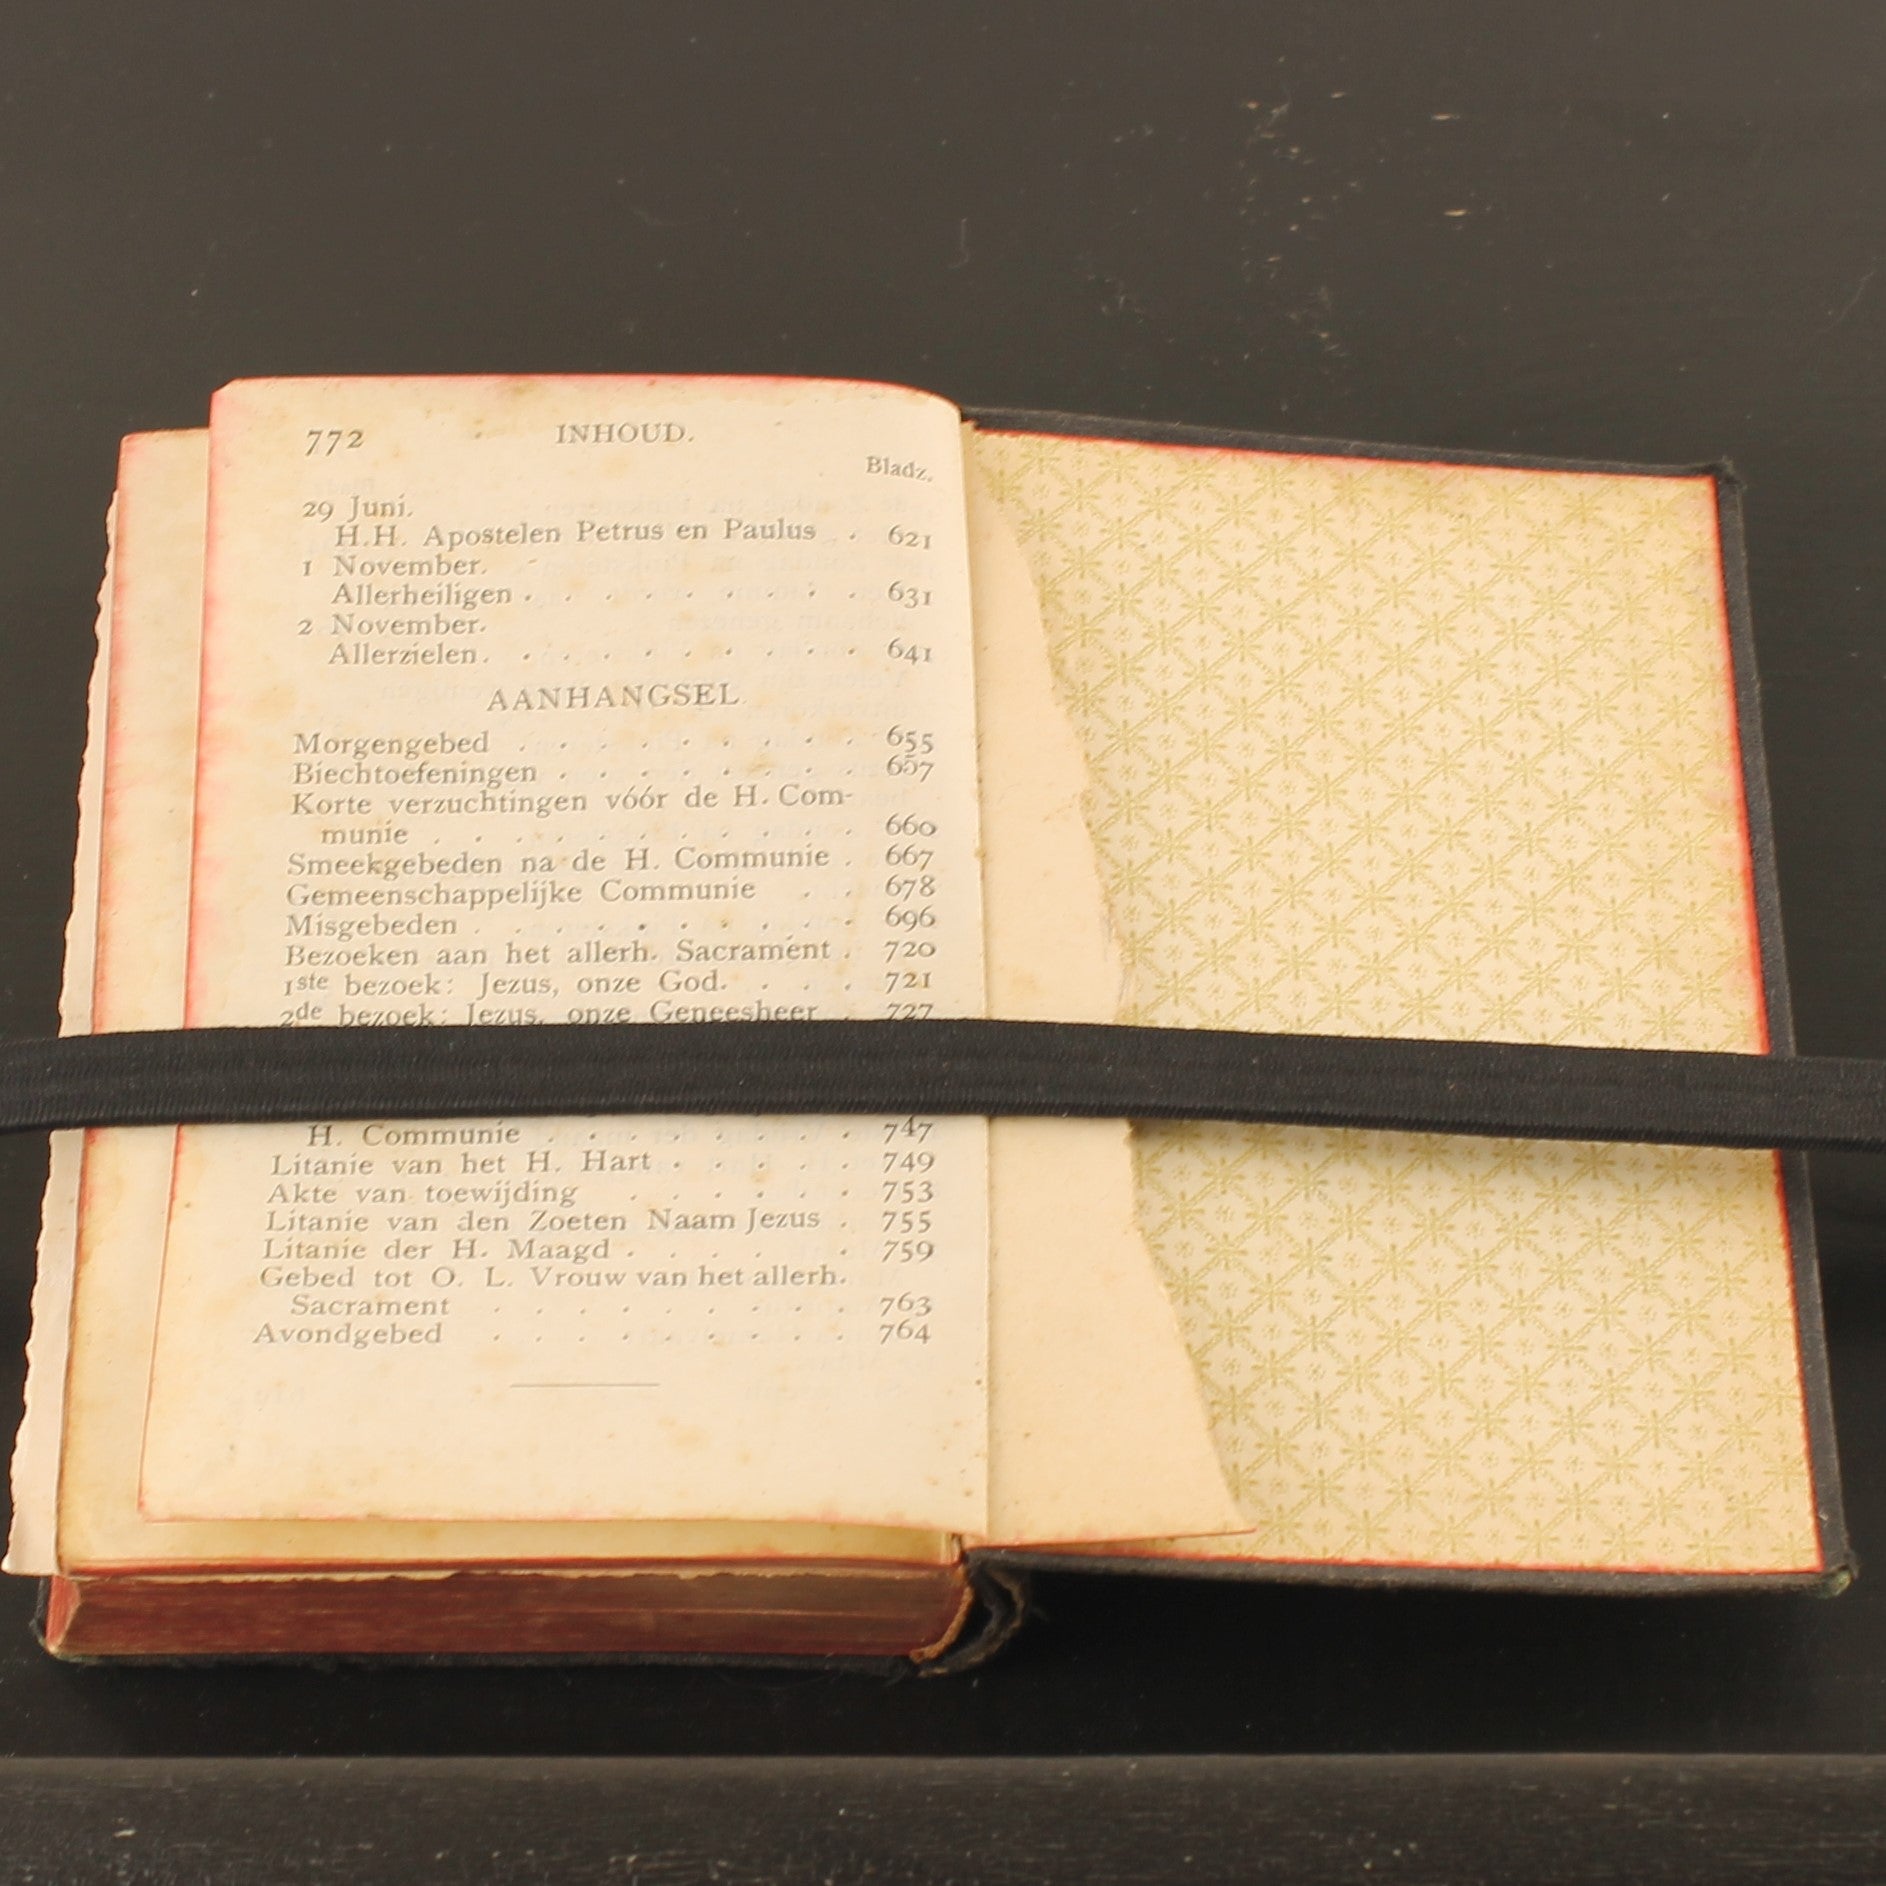 772 INHOUD.
Bladz.
29 Juni.
H.H. Apostelen Petrus en Paulus . 621
1 November.
Allerheiligen . . . . . . . . . 631
2 November.
Allerzielen . . . . . . . . . . 641
AANHANGSEL
Morgengebed . . . . . . . . . 655
Biechtoefeningen . . . . . . . . 657
Korte verzuchtingen vóór de H. Com-
munie . . . . . . . . . . . 660
Smeekgebeden na de H. Communie . 667
Gemeenschappelijke Communie . . 678
Misgebeden . . . . . . . . . . 696
Bezoeken aan het allerh. Sacrament . 720
1ste bezoek: Jezus, onze God. . . . 721
2de bezoek: Jezus, onze Geneesheer . 727
H. Communie . . . . . . . . 747
Litanie van het H. Hart . . . . . 749
Akte van toewijding . . . . . . 753
Litanie van den Zoeten Naam Jezus . 755
Litanie der H. Maagd . . . . . 759
Gebed tot O. L. Vrouw van het allerh.
Sacrament . . . . . . . . . 763
Avondgebed . . . . . . . . . 764